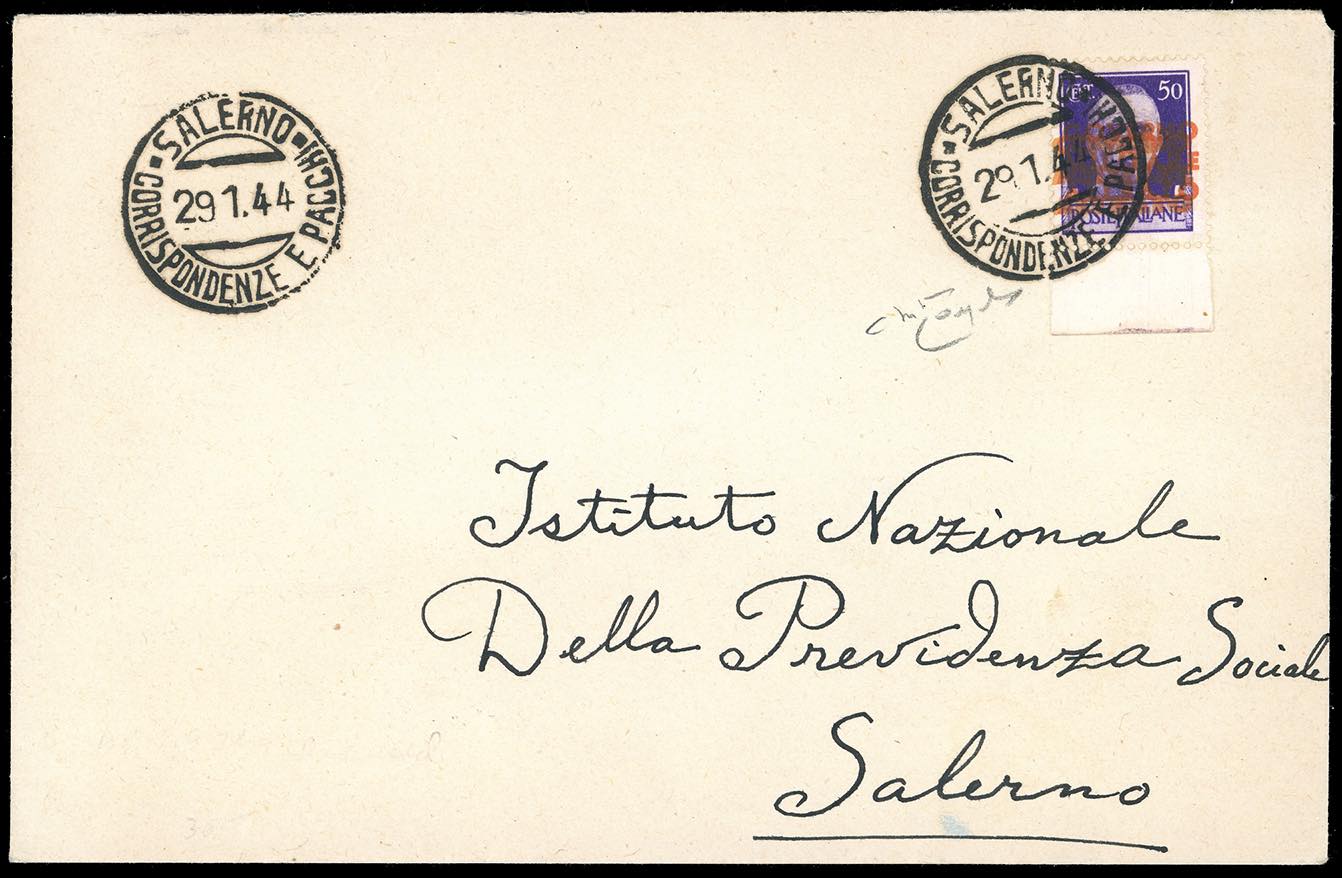 SALERNO
29 1.44
CORRISPONDENZE E PACCHI
SALERNO
29 1.44
CORRISPONDENZE E PACCHI
CENT. 50
POSTE ITALIANE
Istituto Nazionale
Della Previdenza Sociale
Salerno